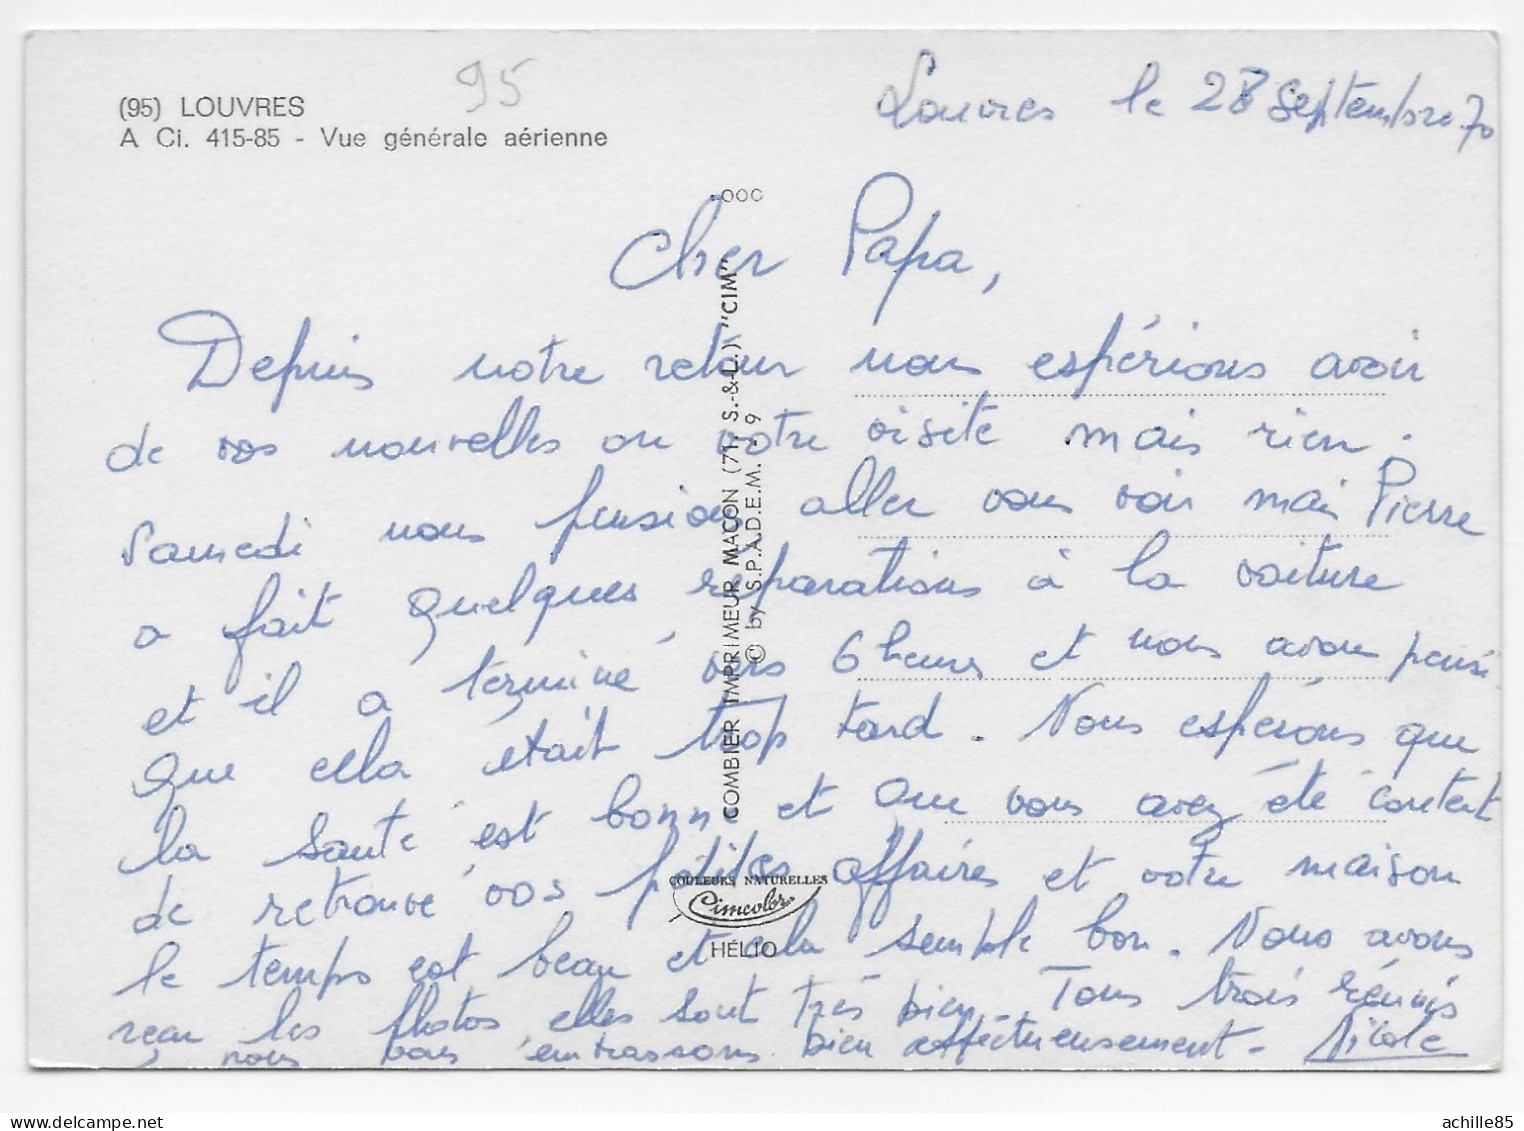 (95) LOUVRES
A Ci. 415-85 - Vue générale aérienne
95
Louvres le 28 septembre 70
Cher Papa,
Depuis notre retour nous espérions avoir
de vos nouvelles ou votre visite mais rien.
Samedi nous pensions aller vous voir mais Pierre
a fait quelques réparations à la voiture
et il a terminé vers 6 heures et nous avons pensé
que cella était trop tard. Nous espérons que
la santé est bonne et que vous avez été content
de retrouvé vos petites affaires et votre maison
le temps est beau et cela semble bon. Nous avons
reçu les photos, elles sont très bien. Tous trois réunis
nous vous embrassons bien affectueusement - Nicole
COMBIER IMPRIMEUR MACON (71 S.-&-L.) "CIM"
© by S.P.A.D.E.M. - 9
COULEURS NATURELLES
Cimcolor
HÉLIO
achille85